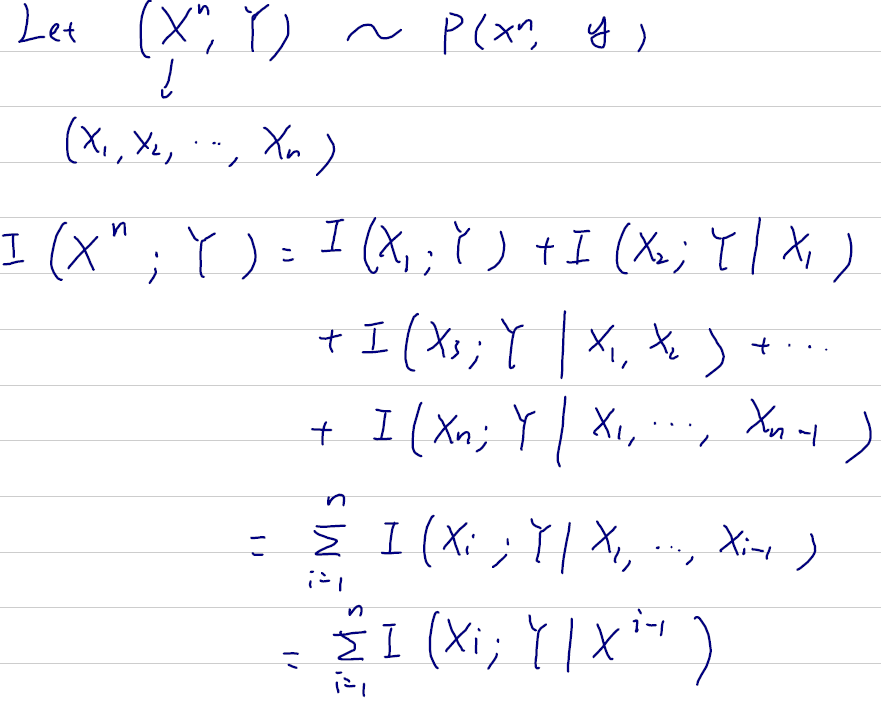 Let (Xⁿ, Y) ~ P(xⁿ, y)
↓
(X₁, X₂, ..., Xₙ)
I(Xⁿ; Y) = I(X₁; Y) + I(X₂; Y | X₁)
+ I(X₃; Y | X₁, X₂) + ...
+ I(Xₙ; Y | X₁, ..., Xₙ₋₁)
= Σᵢ₌₁ⁿ I(Xᵢ; Y | X₁, ..., Xᵢ₋₁)
= Σᵢ₌₁ⁿ I(Xᵢ; Y | Xⁱ⁻¹)